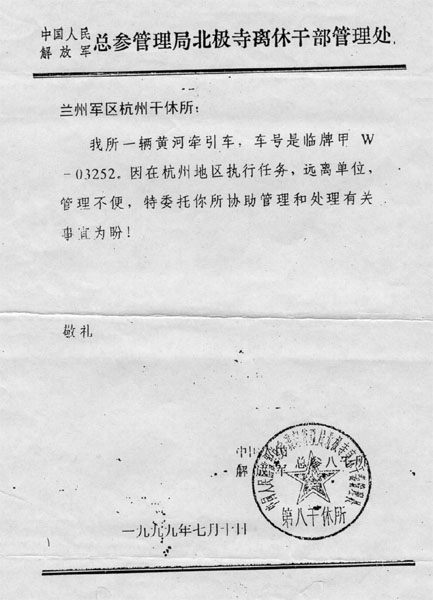 中国人民
解放军 总参管理局北极寺离休干部管理处
兰州军区杭州干休所：
我所一辆黄河牵引车，车号是临牌甲 W
-03252。因在杭州地区执行任务，远离单位，
管理不便，特委托你所协助管理和处理有关
事宜为盼！
敬礼
解放军总参八所
第八干休所
一九九九年七月十日